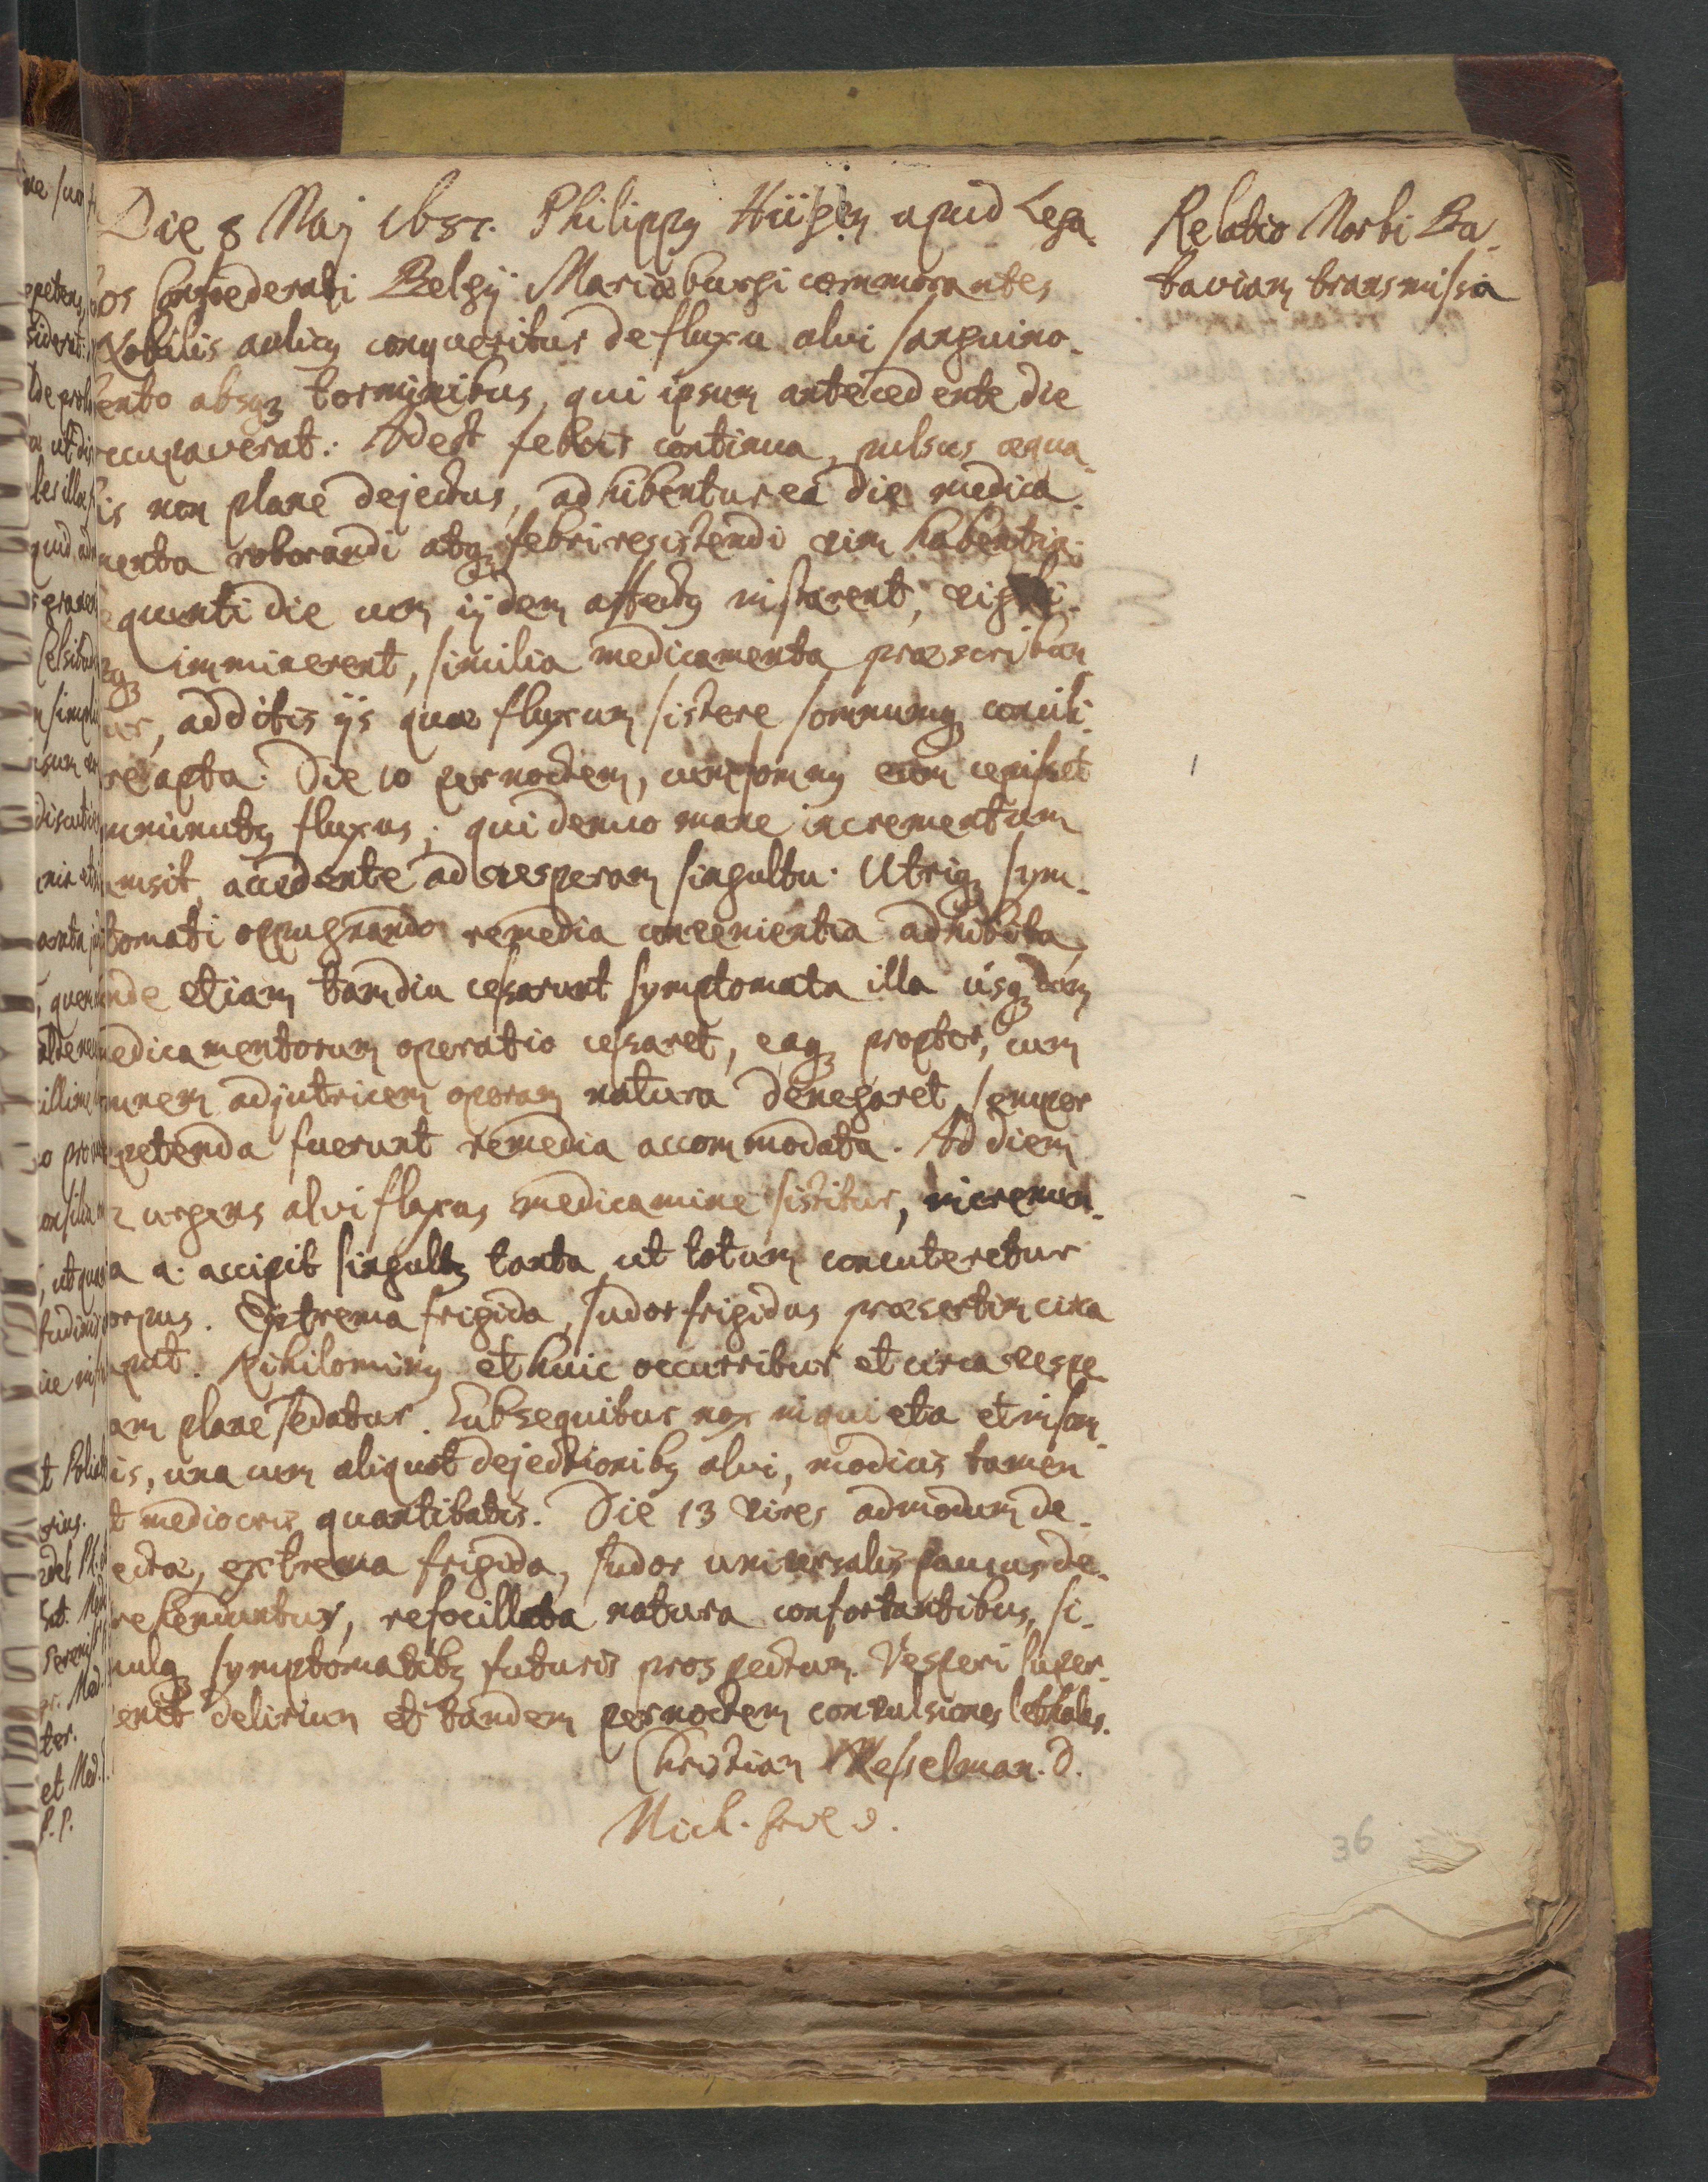 Die 8 Maj 1657. Philippq Hüigen apud Lega-
tos Confoederati Belgij Mariaeburgi commorantes
Nobilis aulicq conqueritur de fluxu alvi sanguino-
lento absq torminibus, qui ipsum antecedente die
occupaverat: Adest febris continua, pulsus aequa-
lis non plane dejectus, adhibentur ea die medica-
menta roborandi atq febri resistendi vim habentia.
Sequenti die cum ijdem affectq instarent, vigili-
aeq imminerent, similia medicamenta praescribun
tur, additis ijs quae fluxum sistere somnumq concili-
are apta. Die 10 per noctem, cum somnq eum cepisset
imminutq fluxus; qui denuo mane incrementum
sumsit, accedente ad vesperam singultu. Utriq sym-
ptomati oppugnando remedia convenientia adhibita,
unde etiam tamdiu cessarunt symptomata illa usq dum
medicamentorum operatio cessaret, eaq propter, cum
omnem adjutricem operam natura denegaret, semper
repetenda fuerunt remedia accommodata. Ad diem
12 urgens alvi fluxus medicamine sistitur, incremen-
ta a. accipit singultq tanta, ut totum concuteretur
corpus. Extrema frigida, sudor frigidus praesertim circa
caput. Nihilominq et huic occurritur et circa vespe-
ram plane sedatur. Subsequitur nox inquieta et insom-
nis, una cum aliquot dejectionibq alvi, modicis tamen
et mediocris quantitatis. Die 13 vires admodum de-
jectae, extrema frigida, sudor universalis paucus de-
prehenduntur, refocillata natura confortantibus, si-
mulq symptomatibq futuris prospectum. Vesperi super-
venit delirium et tandem per noctem convulsiones lethales.
Christian Wesselman. D.
Mich. D.
Relatio Morbi Ba-
taviam transmissa
36